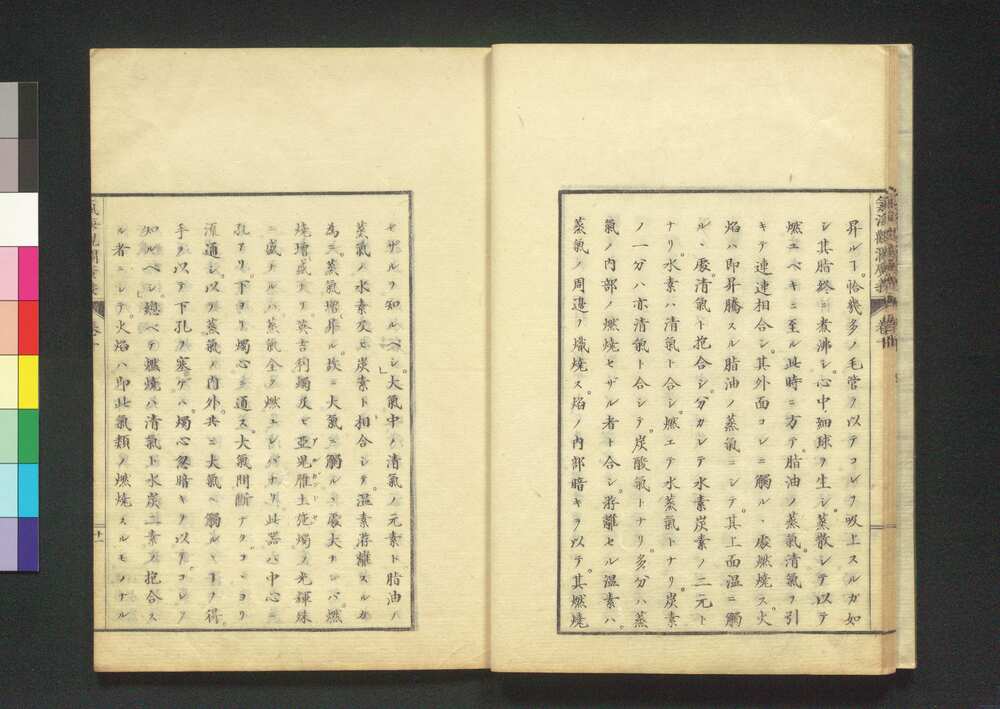 昇ルヿ。恰幾多ノ毛管ヲ以テコレヲ吸上スルガ如
シ其脂終ニ煮沸シ。心中細球ヲ生シ。蒸散シテ以テ
燃エベキニ至ル此時ニ方テ。脂油ノ蒸氣。清氣ヲ引
キテ連連相合シ。其外面コレニ觸ル丶處燃燒ス。火
焰ハ即昇騰スル脂油ノ蒸氣ニシテ。其上面温ニ觸
ル丶處。清氣ト抱合シ。分カレテ水素炭素ノ二元ト
ナリ。水素ハ清氣ト合シ。燃エテ水蒸氣トナリ。炭素
ノ一分ハ亦清氣ト合シテ。炭酸氣トナリ。多分ハ蒸
氣ノ内部ノ燃燒セザル者ト合シ。游離セル温素ハ。
蒸氣ノ周邊ヲ熾燒ス。焰ノ内部暗キヲ以テ。其燃燒
セザルヲ知ルベシ。大氣中ハ清氣ノ元素ト脂油ノ
蒸氣ノ水素及ヒ炭素ト相合シテ温素游離スルガ
為ニ。蒸氣增昇ル。故ニ大氣ニ觸ル丶處大ナレバ燃
燒增盛ナリ。英吉利燭及ヒ亞兒雁土
燭ノ光輝殊
ニ盛ナルハ。蒸氣全ク燃エレバナリ。此器ハ中心ニ
孔アリ。下ヨリ燭心ニ通ス。大氣間斷ナクコレヨリ
流通シ。以テ蒸氣ノ内外。共ニ大氣ヘ觸ル丶ヿヲ得。
手ヲ以テ下孔ヲ塞ゲバ。燭心忽暗キヲ以テ。コレヲ
知ルベシ。總ベテ燃燒ハ。清氣ト水炭二素ノ抱合ス
ル者ニシテ。火焰ハ即此氣類ノ燃燒スルモノナル